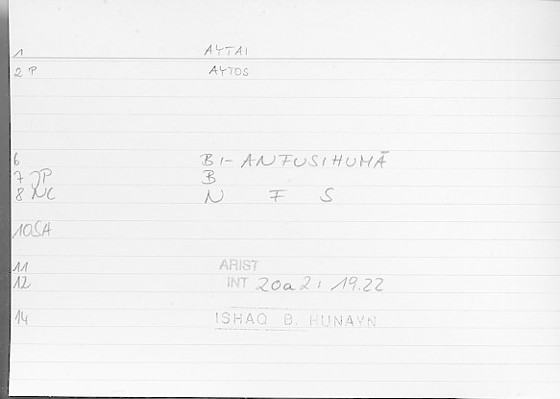 1 AYTAI
2 P AYTOS
6 BI-ANFUSIHUMĀ
7 JP B
8 NC N F S
10SA
11 ARIST
12 INT 20a2; 19.22
14 ISHAQ B. HUNAYN